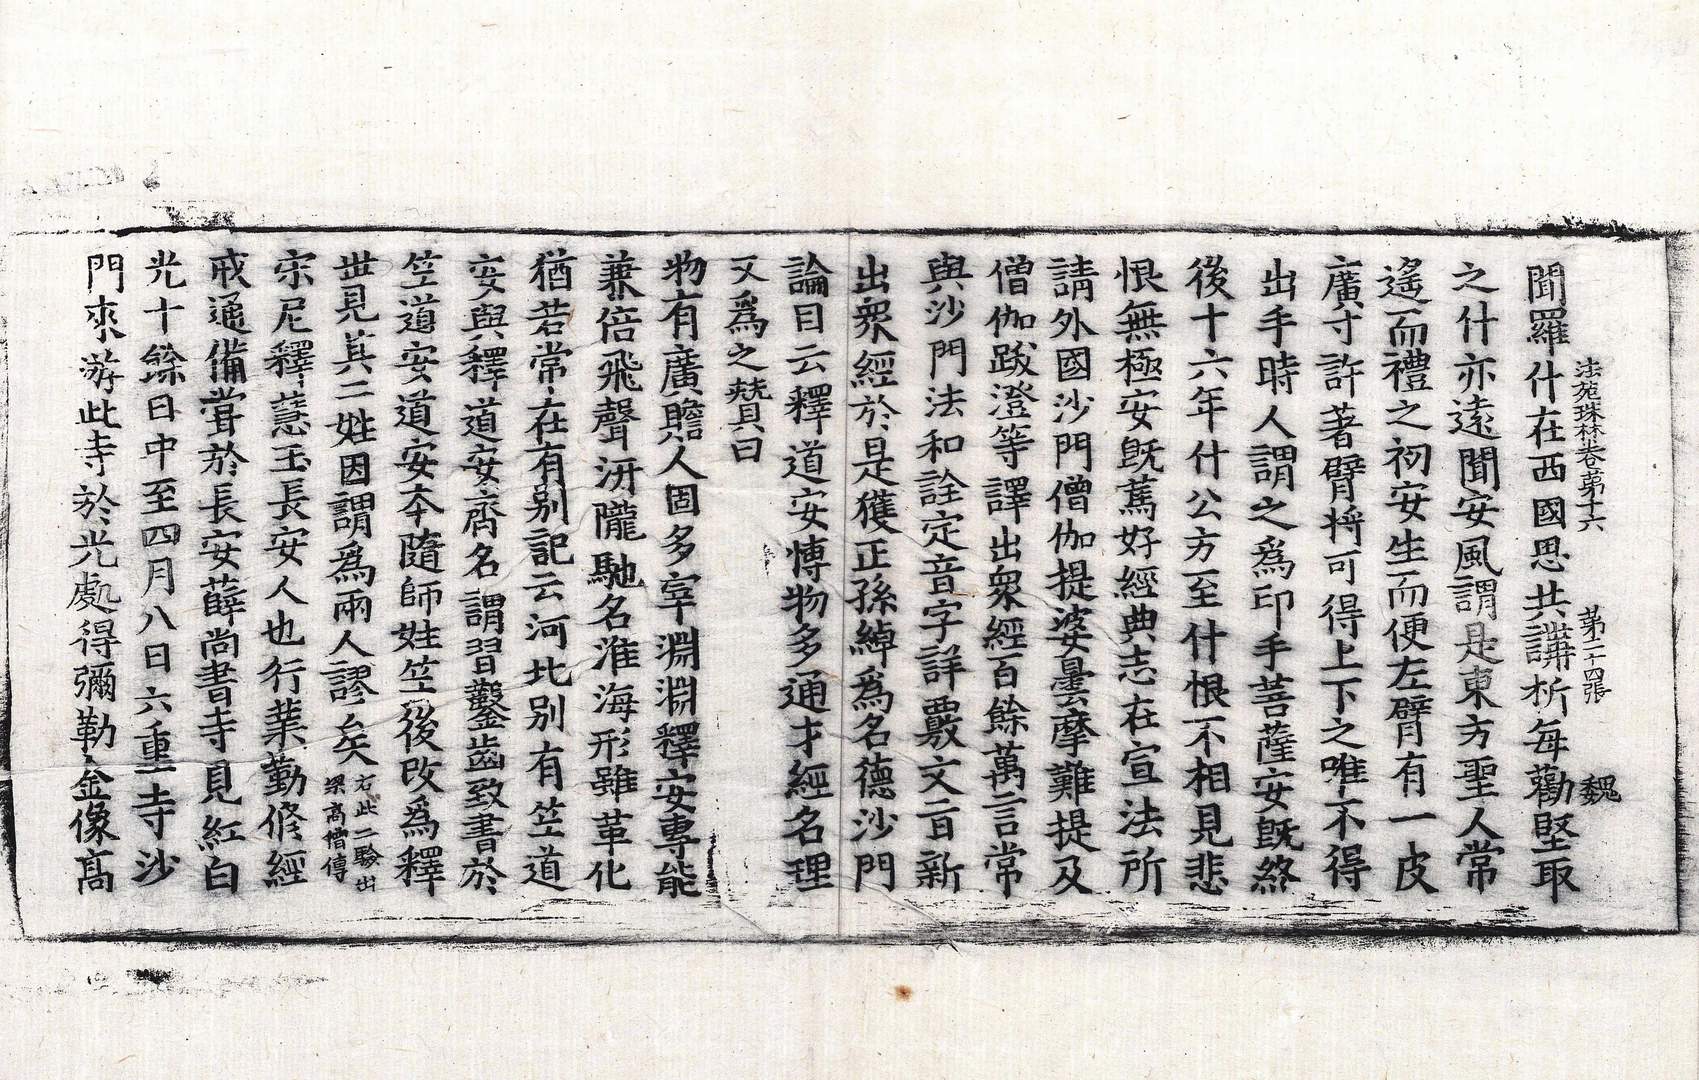 法苑珠林卷第十六　第二十四張　魏
聞羅什在西國思共講析每勸堅取
之什亦遠聞安風謂是東方聖人常
遙而禮之初安生而便左臂有一皮
廣寸許著臂捋可得上下之唯不得
出手時人謂之爲印手菩薩安旣終
後十六年什公方至什恨不相見悲
恨無極安旣篤好經典志在宣法所
請外國沙門僧伽提婆曇摩難提及
僧伽跋澄等譯出衆經百餘萬言常
與沙門法和詮定音字詳覈文旨新
出衆經於是獲正孫綽爲名德沙門
論目云釋道安愽物多通才經名理
又爲之賛曰
物有廣贍人固多宰淵淵釋安專能
兼倍飛聲汧隴馳名淮海形雖革化
猶若常在有別記云河北別有竺道
安與釋道安齊名謂習鑿齒致書於
竺道安道安本隨師姓竺後改爲釋
世見其二姓因謂爲兩人謬矣右此一驗出梁高僧傳
宋尼釋慧玉長安人也行業勤修經
戒通備甞於長安薛尚書寺見紅白
光十餘日中至四月八日六重寺沙
門來游此寺於光處得彌勒金像高